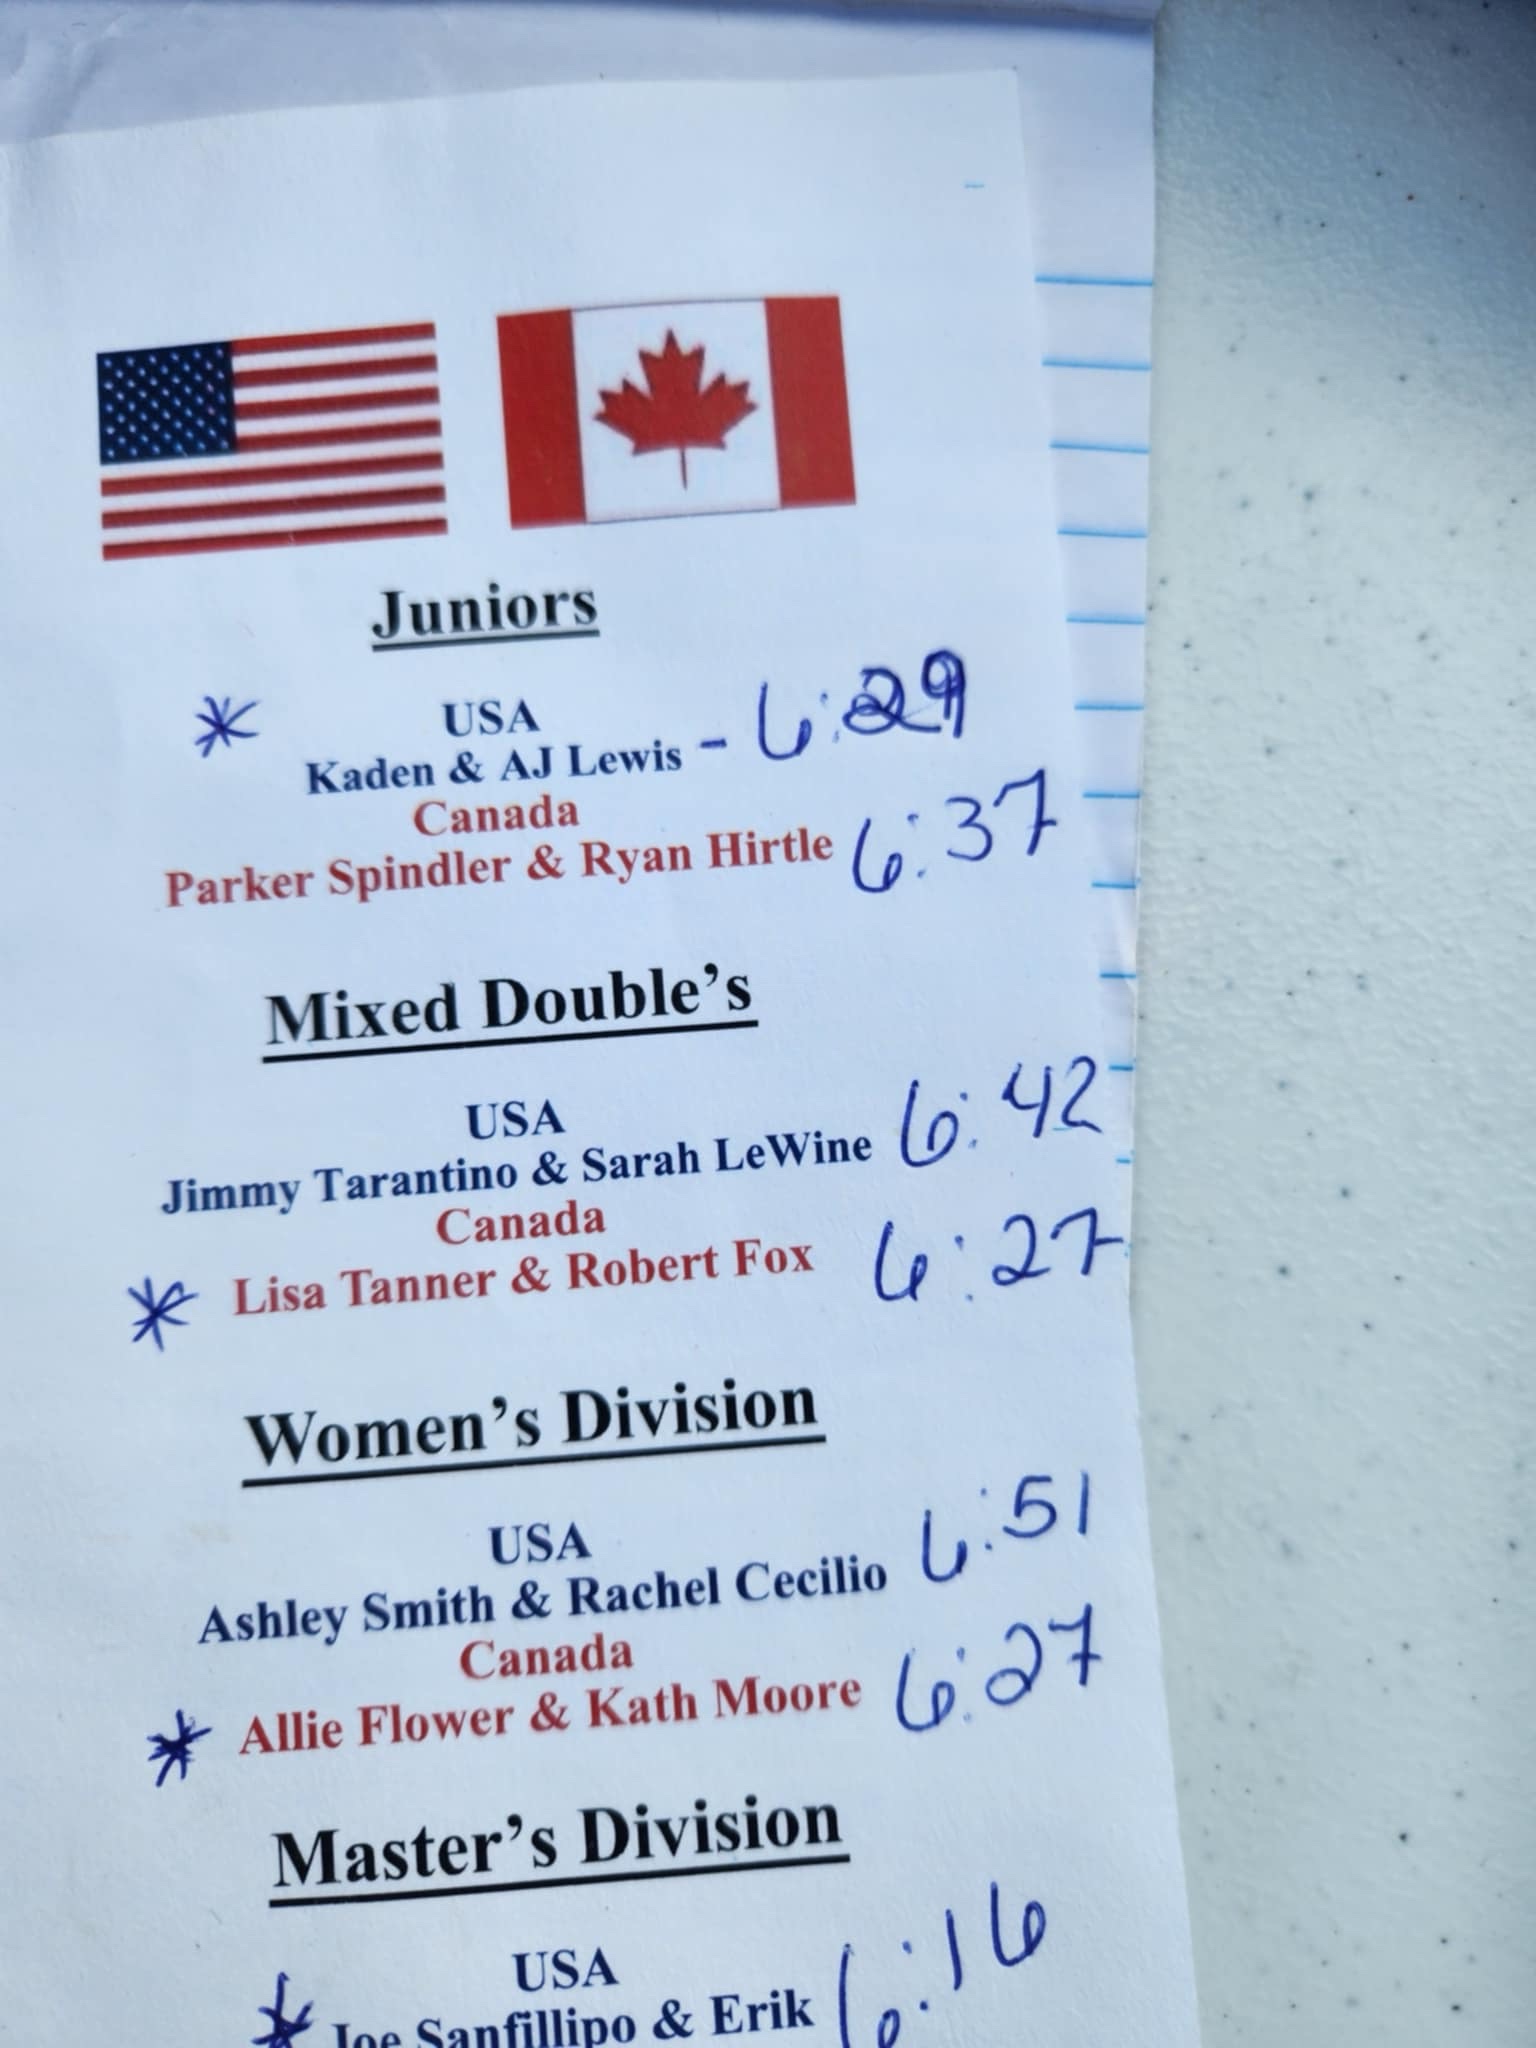 Juniors
* USA
Kaden & AJ Lewis - 6:29
Canada
Parker Spindler & Ryan Hirtle 6:37
Mixed Double's
USA
Jimmy Tarantino & Sarah LeWine 6:42
Canada
* Lisa Tanner & Robert Fox 6:27
Women's Division
USA
Ashley Smith & Rachel Cecilio 6:51
Canada
* Allie Flower & Kath Moore 6:27
Master's Division
USA
* Joe Sanfillipo & Erik 6:16